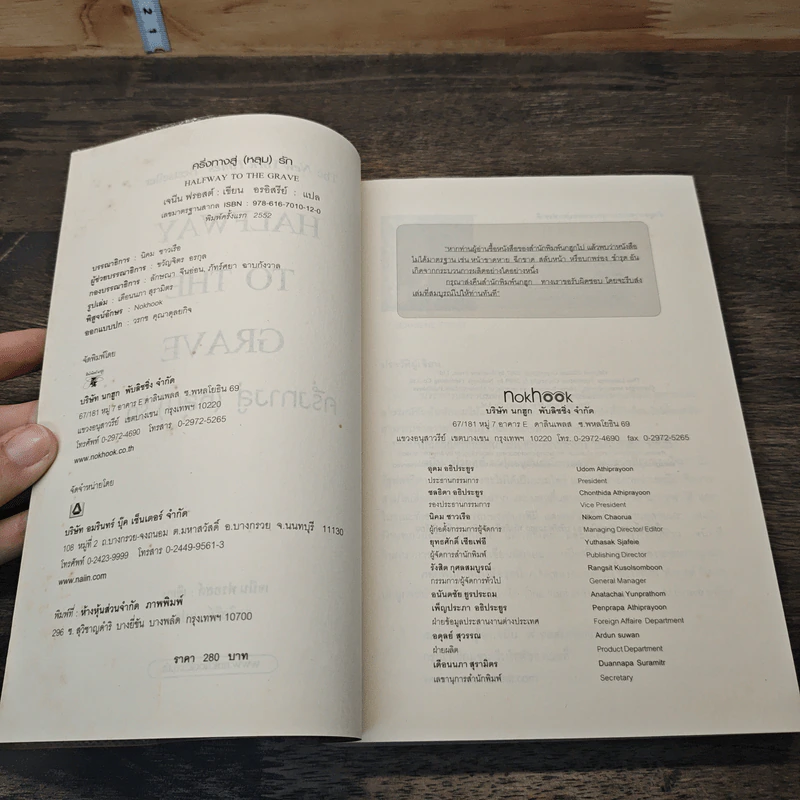 2 1
ครึ่งทางสู่ (หลุม) รัก
HALFWAY TO THE GRAVE
เจนีน ฟรอสต์ : เขียน อรอิสรีย์ : แปล
เลขมาตรฐานสากล ISBN : 978-616-7010-12-0
พิมพ์ครั้งแรก 2552
บรรณาธิการ : นิคม ชาวเรือ
ผู้ช่วยบรรณาธิการ : ขวัญจิตร อรกุล
กองบรรณาธิการ : ลักษณา จีนอ่อน, ภัทร์ศยา ฉาบกังวาล
รูปเล่ม : เดือนนภา สุรามิตร
พิสูจน์อักษร : Nokhook
ออกแบบปก : วรกช คุณาดุลยกิจ
จัดพิมพ์โดย
บริษัท นกฮูก พับลิชชิ่ง จำกัด
67/181 หมู่ 7 อาคาร E ดาลินเพลส ซ.พหลโยธิน 69
แขวงอนุสาวรีย์ เขตบางเขน กรุงเทพฯ 10220
โทรศัพท์ 0-2972-4690 โทรสาร 0-2972-5265
www.nokhook.co.th
จัดจำหน่ายโดย
บริษัท อมรินทร์ บุ๊ค เซ็นเตอร์ จำกัด
108 หมู่ที่ 2 ถ.บางกรวย-จงถนอม ต.มหาสวัสดิ์ อ.บางกรวย จ.นนทบุรี 11130
โทรศัพท์ 0-2423-9999 โทรสาร 0-2449-9561-3
www.naiin.com
พิมพ์ที่ : ห้างหุ้นส่วนจำกัด ภาพพิมพ์
296 ซ. สุวิชาญดำริ บางยี่ขัน บางพลัด กรุงเทพฯ 10700
ราคา 280 บาท
"หากท่านผู้อ่านซื้อหนังสือของสำนักพิมพ์นกฮูกไป แล้วพบว่าหนังสือ
ไม่ได้มาตรฐาน เช่น หน้าขาดหาย ฉีกขาด สลับหน้า หรือบกพร่อง ชำรุด อัน
เกิดจากกระบวนการผลิตอย่างใดอย่างหนึ่ง
กรุณาส่งคืนสำนักพิมพ์นกฮูก ทางเราขอรับผิดชอบ โดยจะรีบส่ง
เล่มที่สมบูรณ์ไปให้ท่านทันที"
nokhook
บริษัท นกฮูก พับลิชชิ่ง จำกัด
67/181 หมู่ 7 อาคาร E ดาลินเพลส ซ.พหลโยธิน 69
แขวงอนุสาวรีย์ เขตบางเขน กรุงเทพฯ 10220 โทร. 0-2972-4690 fax. 0-2972-5265
อุดม อธิประยูร Udom Athiprayoon
ประธานกรรมการ President
ชลธิดา อธิประยูร Chonthida Athiprayoon
รองประธานกรรมการ Vice President
นิคม ชาวเรือ Nikom Chaorua
ผู้ก่อตั้งกรรมการผู้จัดการ Managing Director/ Editor
ยุทธศักดิ์ เซียเฟอี Yuthasak Sjafeie
ผู้จัดการสำนักพิมพ์ Publishing Director
รังสิต กุศลสมบูรณ์ Rangsit Kusolsomboon
กรรมการ/ผู้จัดการทั่วไป General Manager
อนันตชัย ยูรประถม Anatachai Yunprathom
เพ็ญประภา อธิประยูร Penprapa Athiprayoon
ฝ่ายข้อมูลประสานงานต่างประเทศ Foreign Affaire Department
อดุลย์ สุวรรณ Ardun suwan
ฝ่ายผลิต Product Department
เดือนนภา สุรามิตร Duannapa Suramitr
เลขานุการสำนักพิมพ์ Secretary